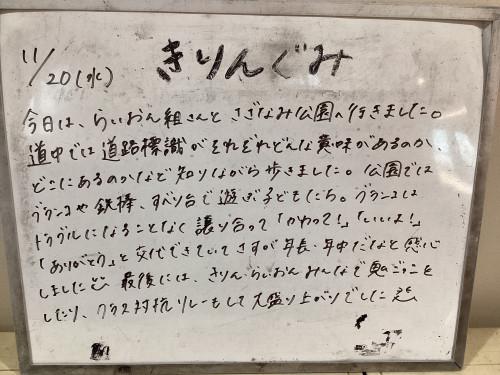 11/20(水) きりんぐみ
今日は、らいおん組さんと さざなみ公園へ行きました。
道中では道路標識がそれぞれどんな意味があるのか、
どこにあるのかなど知りながら歩きました。公園では
ブランコや鉄棒、すべり台で遊ぶ子どもたち。ブランコは
トラブルになることなく譲り合って「かわって!」「いいよ!」
「ありがとう」と交代できていてさすが年長・年中だなと感心
しました 最後には、きりん・らいおんみんなで鬼ごっこを
したり、クラス対抗リレーもして大盛り上がりでした